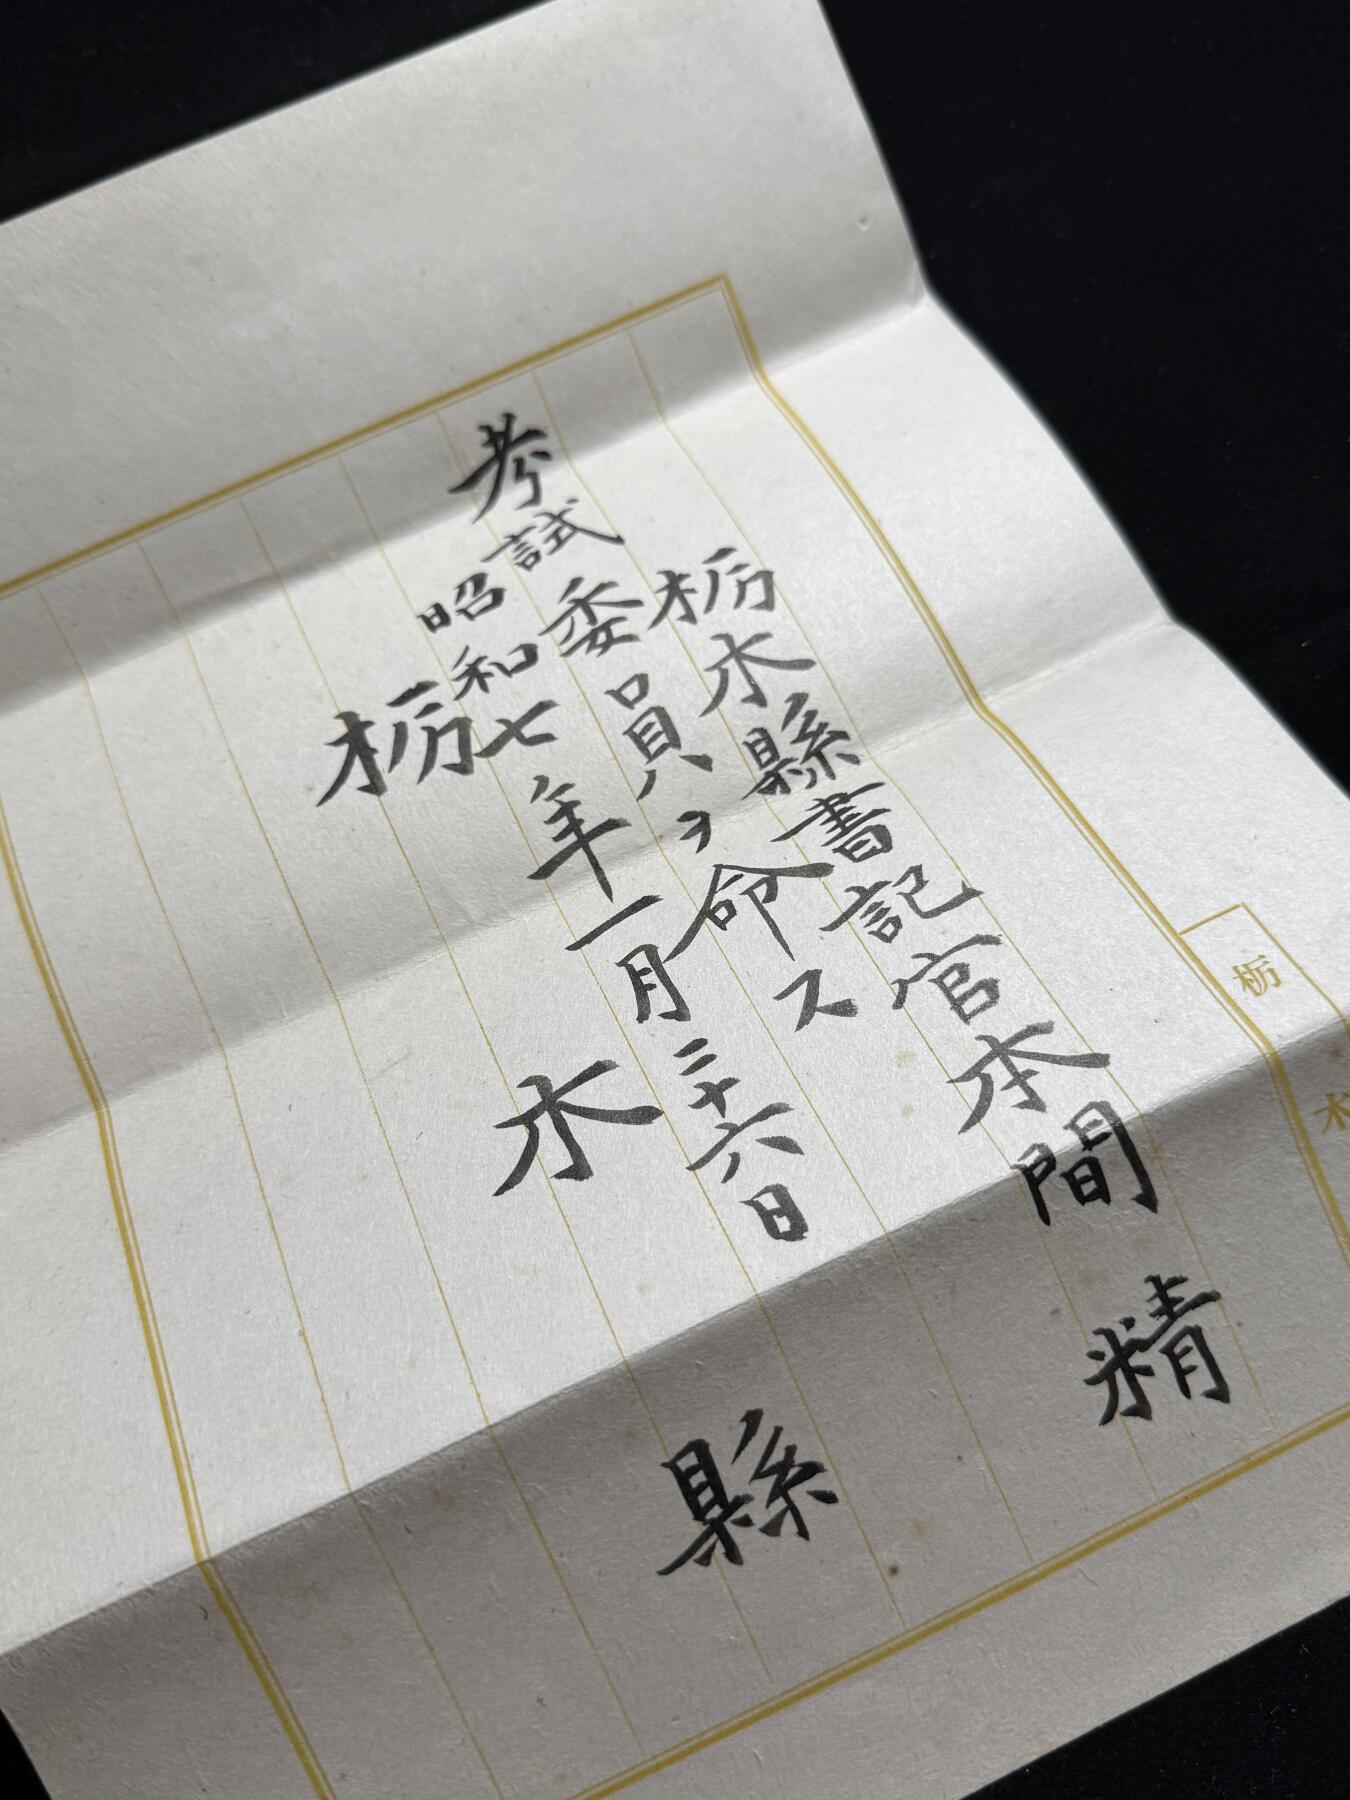 栃木縣書記官本間精
考試委員ヲ命ス
昭和七年一月二十六日
栃木縣
栃木